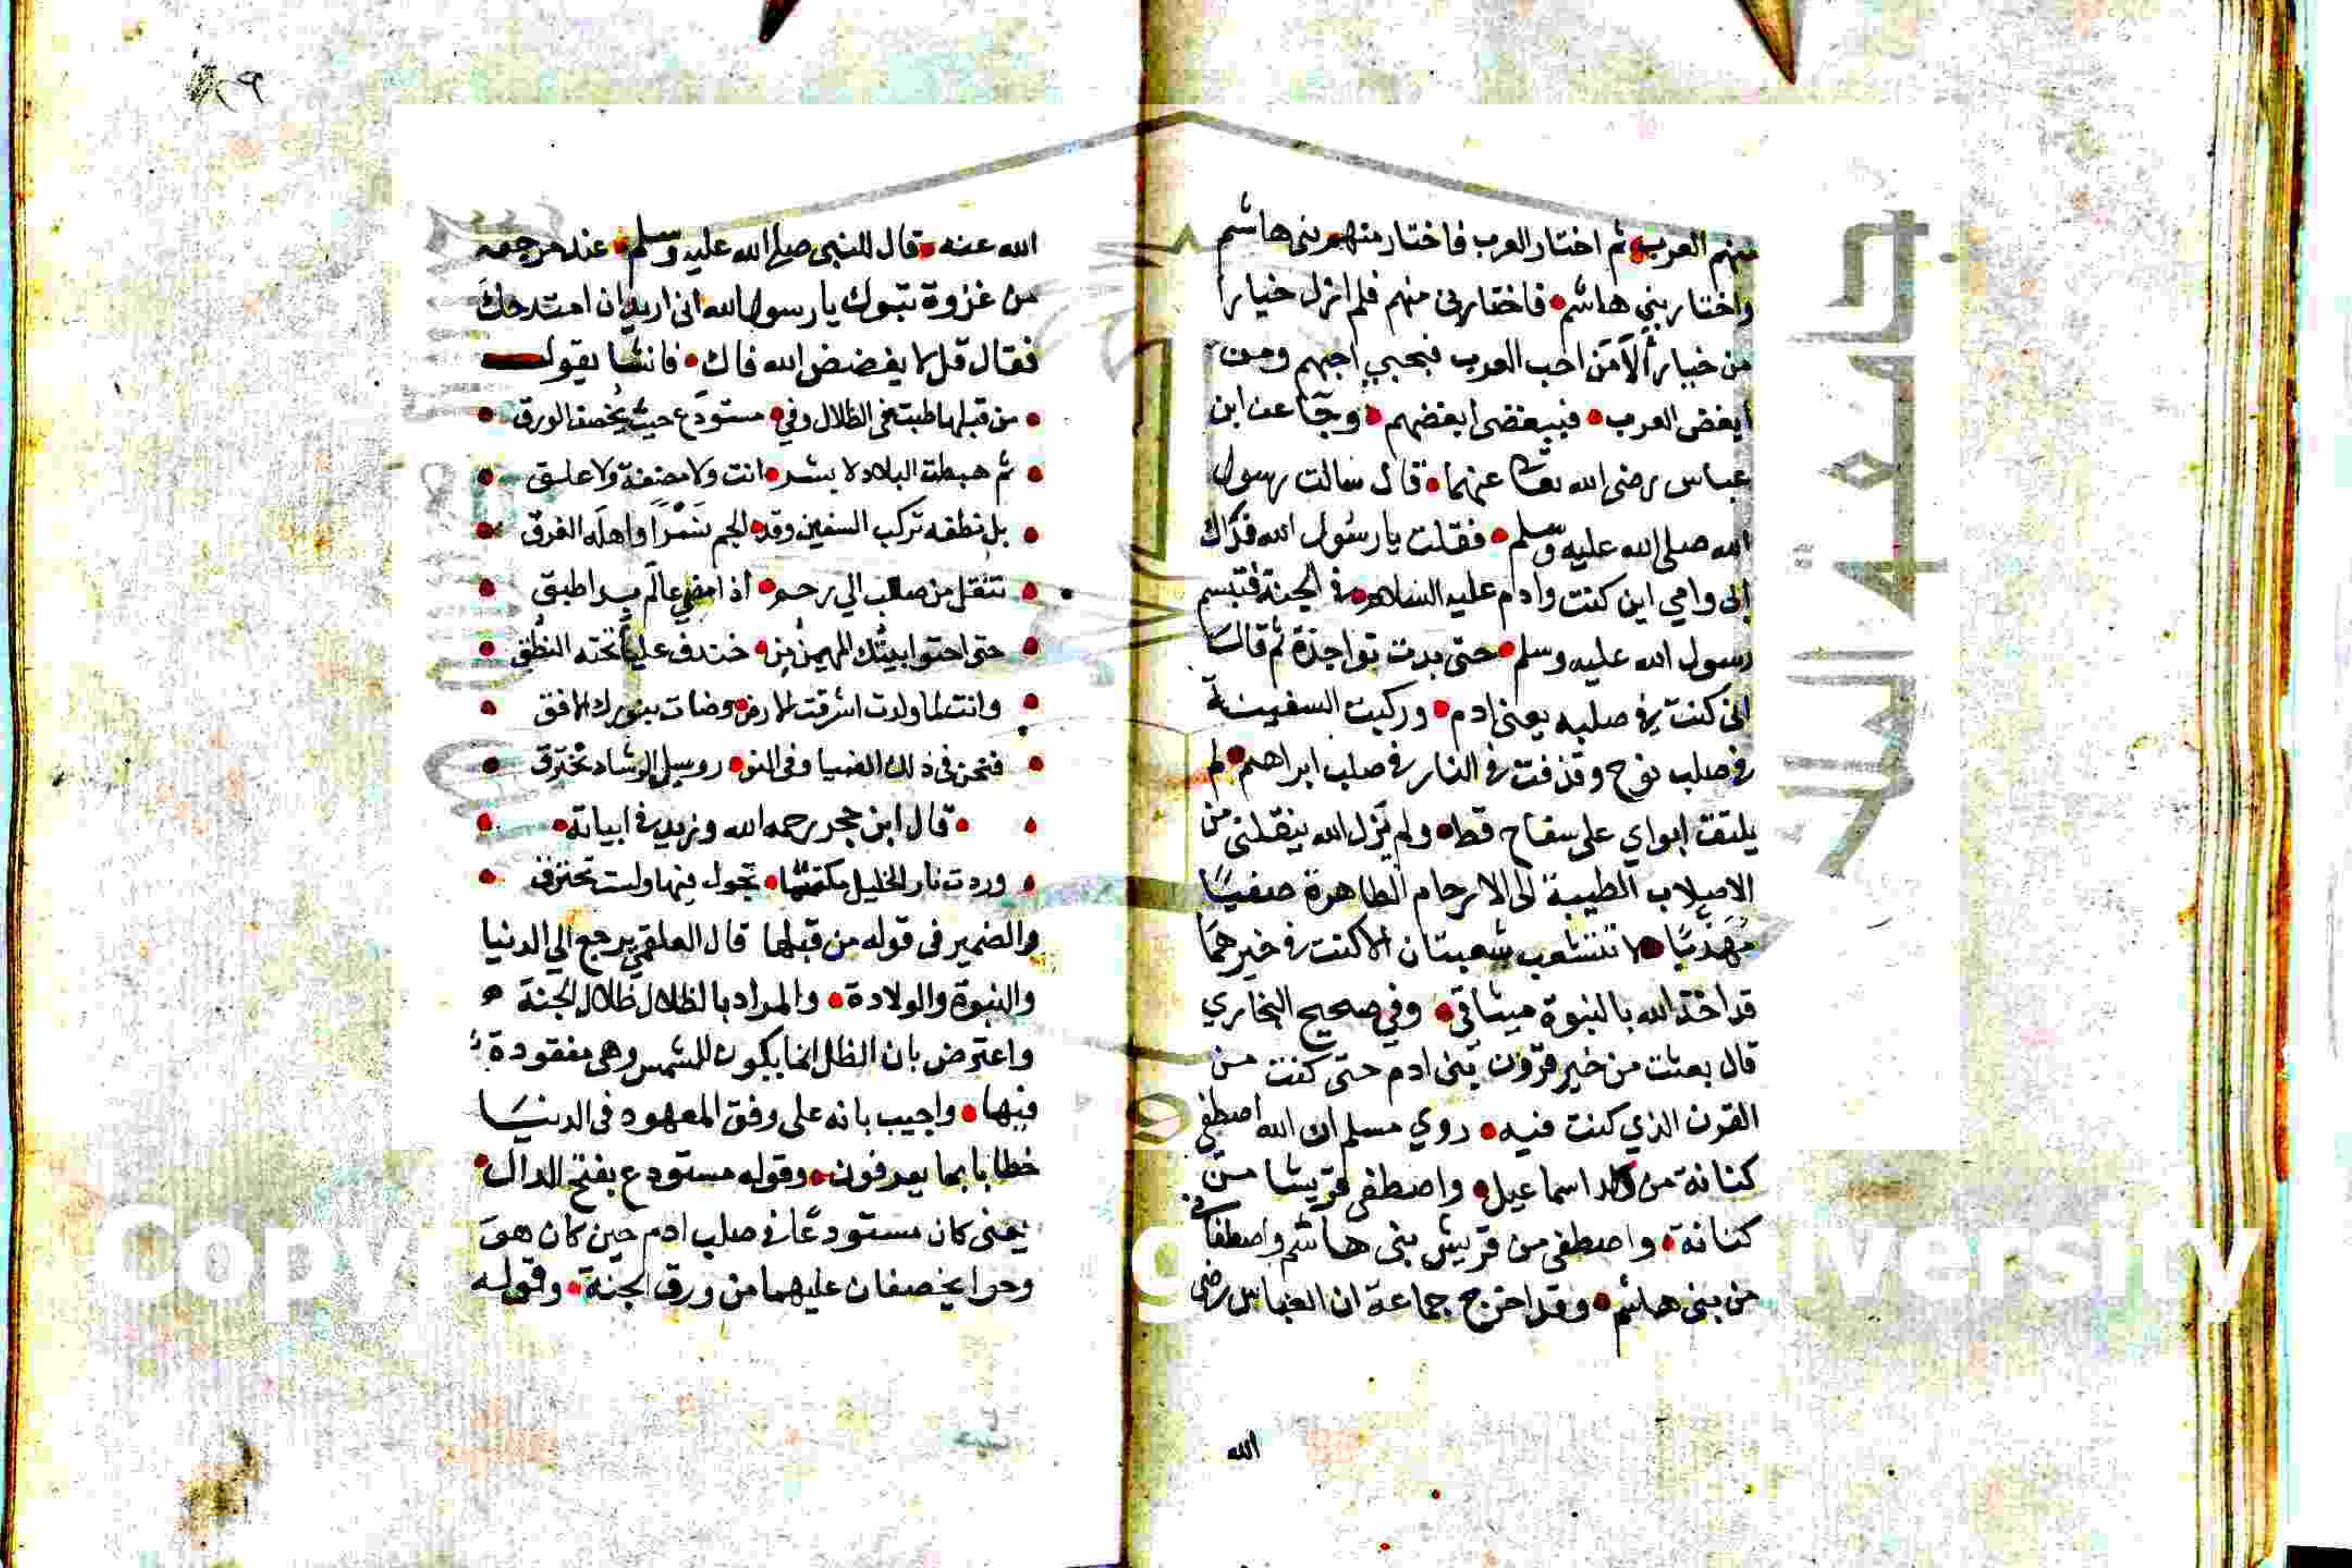 منهم العرب ثم اختار العرب فاختار منهم بنى هاشم
واختار بني هاشم فاختارنى منهم فلم ازل خيارا
من خيار ألا من احب العرب فبحبي احبهم ومن
ابغض العرب فببغضى ابغضهم وجآ عن ابن
عباس رضى الله تعا عنهما قال سالت رسول
الله صلى الله عليه وسلم فقلت يا رسول الله فداك
ابى وامي اين كنت وادم عليه السلام في الجنة فتبسم
رسول الله عليه وسلم حتى بدت نواجذه ثم قال
انى كنت في صلبه يعنى ادم وركبت السفينة
في صلب نوح وقذفت في النار في صلب ابراهيم لم
يلتقت ابواي على سفاح قط ولم يزل الله ينقلنى من
الاصلاب الطيبة الى الارحام الطاهرة صفيا
مهذبا لا تتشعب شعبتان الا كنت في خيرهما
قد اخذ الله بالنبوة ميثاقي وفي صحيح البخاري
قال بعثت من خير قرون بنى ادم حتى كنت من
القرن الذي كنت فيه روي مسلم ان الله اصطفى
كنانة من ولد اسماعيل واصطفى قريشا من
كنانة واصطفى من قريش بنى هاشم واصطفانى
من بنى هاشم وقد اخرج جماعة ان العباس رضى
الله
٨٩
الله عنه قال للنبى صلى الله عليه وسلم عند مرجعه
من غزوة تبوك يا رسول الله انى اريد ان امتدحك
فقال قل لا يفضض الله فاك فانشا يقول
من قبلها طبت فى الظلال وفي مستودع حيث يخصف الورق
ثم هبطت البلاد لا بشر انت ولا مضغة ولا علق
بل نطفه تركب السفين وقد الجم نسرا واهله الغرق
تنقل من صالب الي رحم اذا مضى عالم بدا طبق
حتى احتوا بيتك المهيمن من خندف عليا تحته النطق
وانت لما ولدت اشرقت الارض وضات بنورك الافق
فنحن فى ذلك الضيا وفى النو ر وسبل الرشاد نخترق
قال ابن حجر رحمه الله ونزيد في ابياته
وردت نار الخليل مكتتما تجول فيها ولست تحترق
والضمير فى قوله من قبلها قال العلقمي يرجع الي الدنيا
والنبوة والولادة والمراد بالظلال ظلال الجنة
واعترض بان الظل انما يكون للشمس وهى مفقودة
فيها واجيب بانه على وفق المعهود فى الدنيا
خطابا بما يعرفون وقوله مستودع بفتح الدال
يعنى كان مستودعا في صلب ادم حين كان هو
وحوا يخصفان عليهما من ورق الجنة وقوله